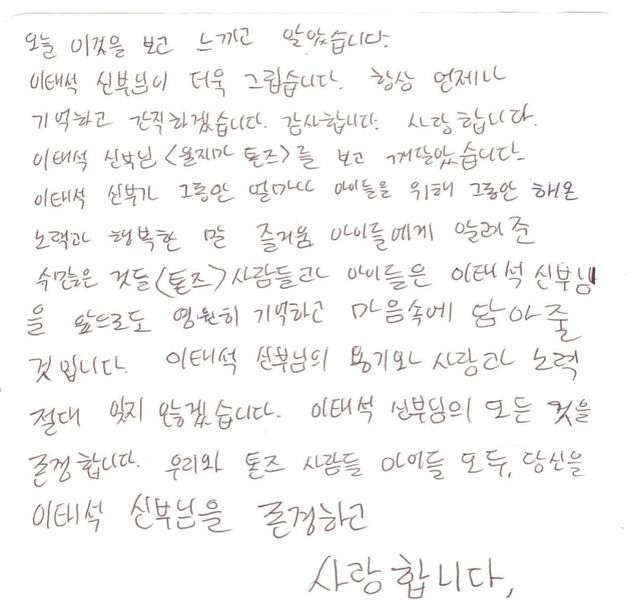 오늘 이것을 보고 느끼고 알았습니다.
이태석 신부님이 더욱 그립습니다. 항상 언제나
기억하고 간직하겠습니다. 감사합니다. 사랑합니다.
이태석 신부님 <울지마 톤즈>를 보고 깨달았습니다.
이태석 신부가 그동안 얼마나 아이들을 위해 그동안 해온
노력과 행복한 말 즐거움 아이들에게 알려준
수많은 것들 <톤즈> 사람들과 아이들은 이태석 신부님
을 앞으로도 영원히 기억하고 마음속에 담아 줄
것 입니다. 이태석 신부님의 용기와 사랑과 노력
절대 잊지 않겠습니다. 이태석 신부님의 모든 것을
존경합니다. 우리와 톤즈 사람들 아이들 모두, 당신을
이태석 신부님을 존경하고
사랑합니다,